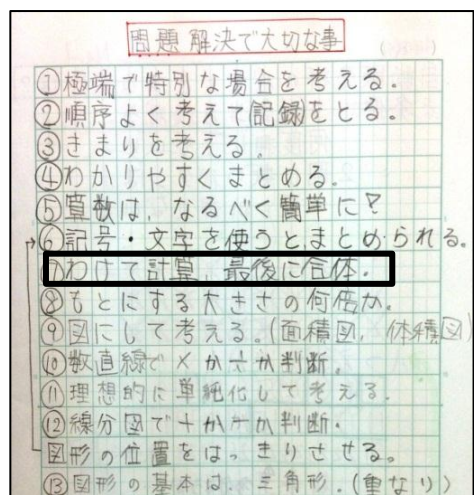 問題解決で大切な事
①極端で特別な場合を考える.
②順序よく考えて記録をとる。
③きまりを考える.
④わかりやすくまとめる.
⑤算数は,なるべく簡単に?
⑥記号・文字を使うと,まとめられる。
⑦わけて計算,最後に合体.
⑧もとにする大きさの何倍か.
⑨図にして考える。(面積図,体積図)
⑩数直線で×か÷か判断.
⑪理想的に単純化して考える.
⑫線分図で+か-か判断.
図形の位置をはっきりさせる。
⑬図形の基本は,三角形.(重なり)